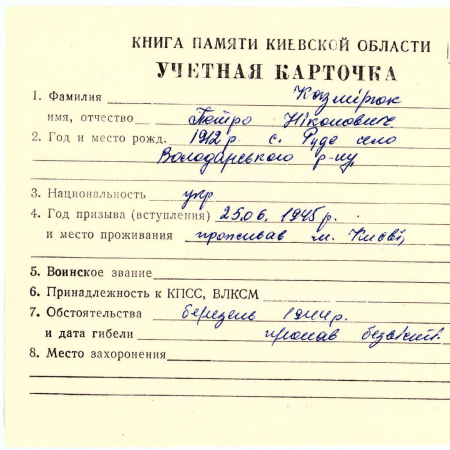 КНИГА ПАМЯТИ КИЕВСКОЙ ОБЛАСТИ
УЧЕТНАЯ КАРТОЧКА
1. Фамилия Казмірюк
имя, отчество Петро Ніконович
2. Год и место рожд. 1912 р с. Руде село
Володарського р-ну,
3. Национальность укр
4. Год призыва (вступления) 25.06. 1945 р.
и место проживания проживав м. Києві,
5. Воинское звание
6. Принадлежность к КПСС, ВЛКСМ
7. Обстоятельства березень 1944р.
и дата гибели пропав безвісти.
8. Место захоронения